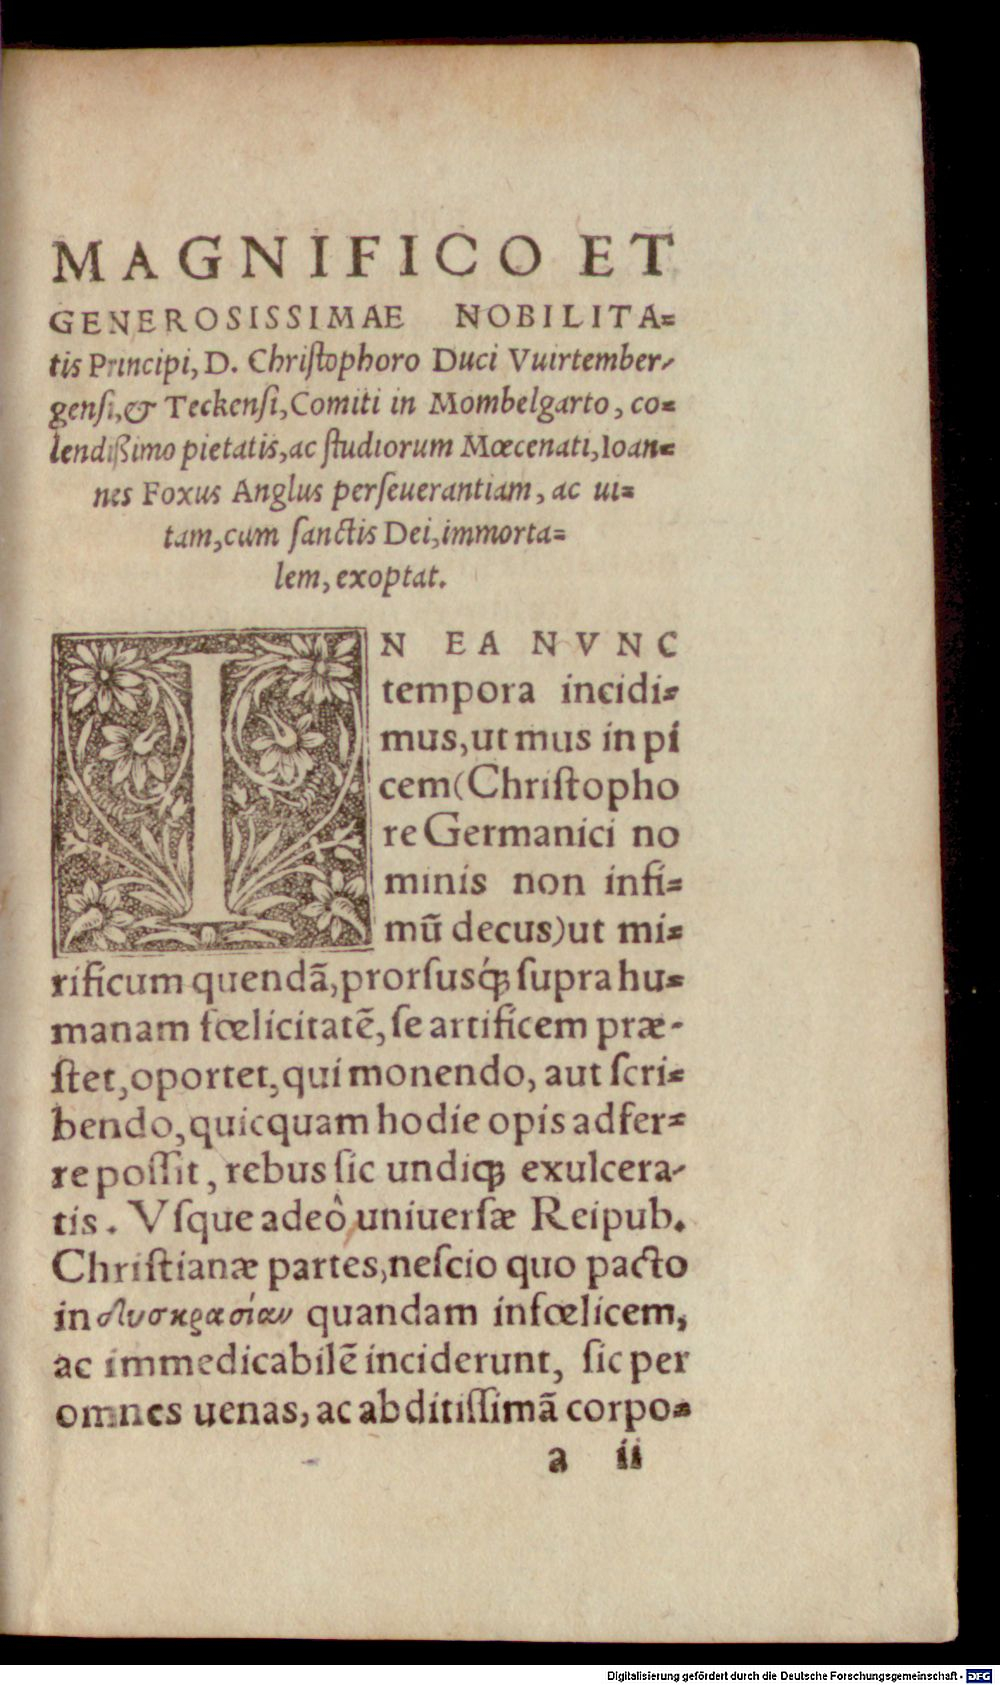 MAGNIFICO ET
GENEROSISSIMAE NOBILITA=
tis Principi, D. Chriſtophoro Duci Vuirtember-
genſi, & Teckenſi, Comiti in Mombelgarto, co=
lendißimo pietatis, ac ſtudiorum Mœcenati, Ioan=
nes Foxus Anglus perſeuerantiam, ac ui=
tam, cum ſanctis Dei, immorta=
lem, exoptat.
IN EA NVNC
tempora incidi=
mus, ut mus in pi
cem (Chriſtopho
re Germanici no
minis non infi=
mū decus) ut mi=
rificum quendã, prorſusq́ꝫ ſupra hu=
manam fœlicitatē, ſe artificem præ-
ſtet, oportet, qui monendo, aut ſcri=
bendo, quicquam hodie opis adfer=
re poſſit, rebus ſic undiqꝫ exulcera-
tis. Vſque adeò uniuerſæ Reipub.
Chriſtianæ partes, neſcio quo pacto
in δυσκρασίαν quandam infœlicem,
ac immedicabilē inciderunt, ſic per
omnes uenas, ac abditiſſimã corpo=
a ii
Digitalisierung gefördert durch die Deutsche Forschungsgemeinschaft - DFG